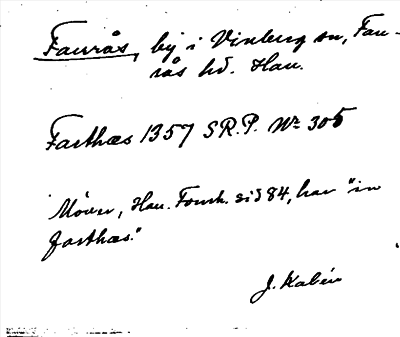 Faurås, by i Vinberg sn, Fau-
rås hd. Hau.
Farthæs 1357 S.R.P. Nr 305
Möver, Hau. Fornh. sid 84, har "in
farthæs."
J. Kalén